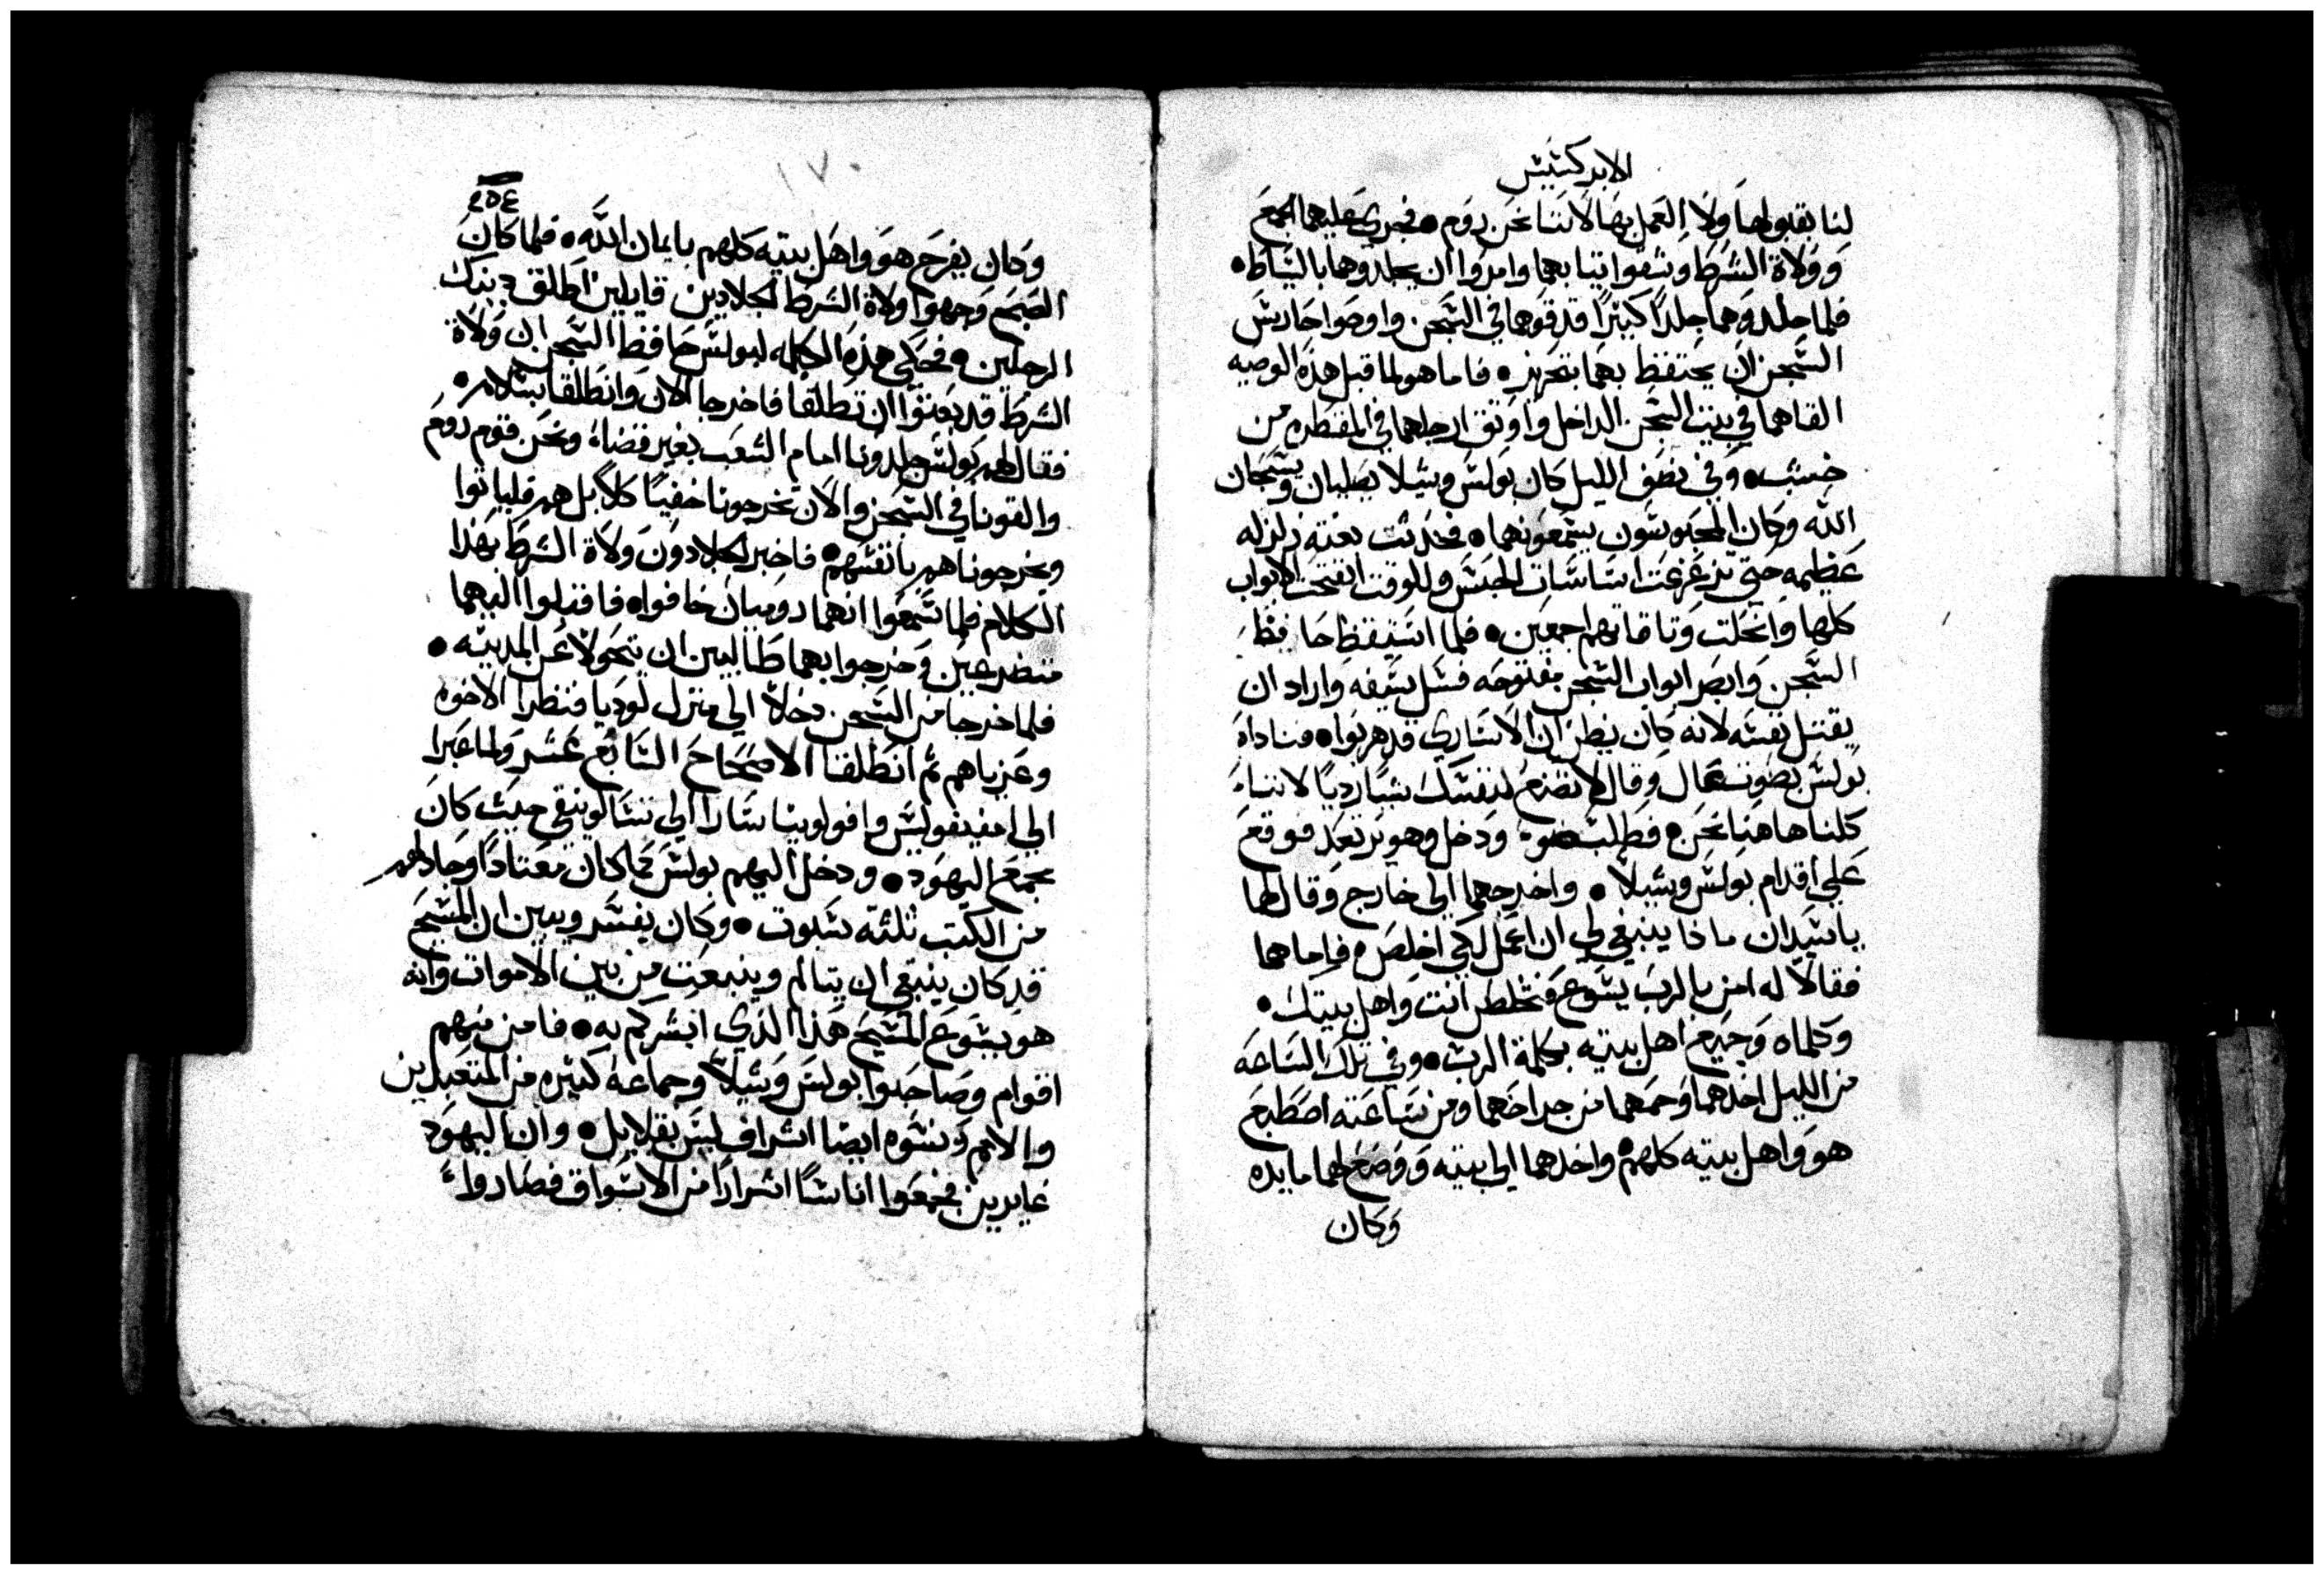 الابركسيس
لنا بقبولها ولا العمل بها لاننا نحن روم • فجرى عليهما الجمع
وولاة الشرط وشقوا ثيابهما وامروا ان يجلدوهما بالسياط •
فلما جلدوهما جلدًا كثيرًا قدفوهما في السجن واوصوا حارس
السجن ان يحتفظ بهما بتحريز • فاما هو لما قبل هذه الوصيه
القاهما في بيت السجن الداخل واوثق ارجلهما في المقطره من
خشب • وفي نصف الليل كان بولس وسيلا يصليان ويسبحان
الله وكان المحبوسون يسمعونهما • فحدثت بغته زلزله
عظيمه حتى تزعزعت اساسات الحبس وللوقت انفتحت الابواب
كلها وانحلت وثاقاتهم اجمعين • فلما استيقظ حافظ
السجن وابصر ابواب السجن مفتوحه فسل سيفه واراد ان
يقتل نفسه لانه كان يظن ان الاسارى قد هربوا • فناداه
بولس بصوت عال وقال لا تصنع لنفسك شيا رديًا لاننا
كلنا هاهنا نحن • فطلب ضوء ودخل وهو يرتعد فوقع
على اقدام بولس وسيلا • واخرجهما الى خارج وقال لهما
ياسيدان ماذا ينبغي لي ان اعمل لكي اخلص • فاما هما
فقالا له امن بالرب يسوع فتخلص انت واهل بيتك •
وكلماه وجميع اهل بيته بكلمة الرب • وفي تلك الساعه
من الليل اخدهما وحمهما من جراحهما ومن ساعته اصطبغ
هو واهل بيته كلهم • واخدهما الى بيته ووضع لهما مايده
وكان
١٧
٢٥٤
وكان يفرح هو واهل بيته كلهم بايمان الله • فلما كان
الصبح وجهوا ولاة الشرط الجلادين قايلين اطلق دينك
الرجلين • فحكى هذه الكلمه لبولس حافظ السجن ان ولاة
الشرط قد بعثوا ان تطلقا فاخرجا الان وانطلقا بسلام •
فقال لهم بولس جلدونا امام الشعب بغير قضاء ونحن قوم روم
والقونا في السجن والان تخرجونا خفيًا كلا بل هم فلياتوا
ويخرجونا هم بانفسهم • فاخبر الجلادون ولاة الشرط بهذا
الكلام فلما سمعوا انهما روميان خافوا • فاقبلوا اليهما
متضرعين وخرجوا بهما طالبين ان يتحولا عن المدينه •
فلما خرجا من السجن دخلا الى منزل لوديا فنظرا الاخوه
وعزياهم ثم انطلقا الاصحاح السابع عشر ولما عبرا
الى امفيبوليس وافولونيا سارا الى تسالونيقي حيث كان
مجمع اليهود • ودخل اليهم بولس كما كان معتادًا وجادلهم
من الكتب ثلثه سبوت • وكان يفسر ويبين ان المسيح
قد كان ينبغي ان يتالم وينبعث من بين الاموات وانه
هو يسوع المسيح هذا الذي ابشركم به • فامن منهم
اقوام وصاحبوا بولس وسيلا وجماعه كثيره من المتعبدين
والامم ونسوه ايضا اشراف ليس بقلايل • وان اليهود
غايرين فجمعوا اناسًا اشرارًا من الاسواق فصاروا